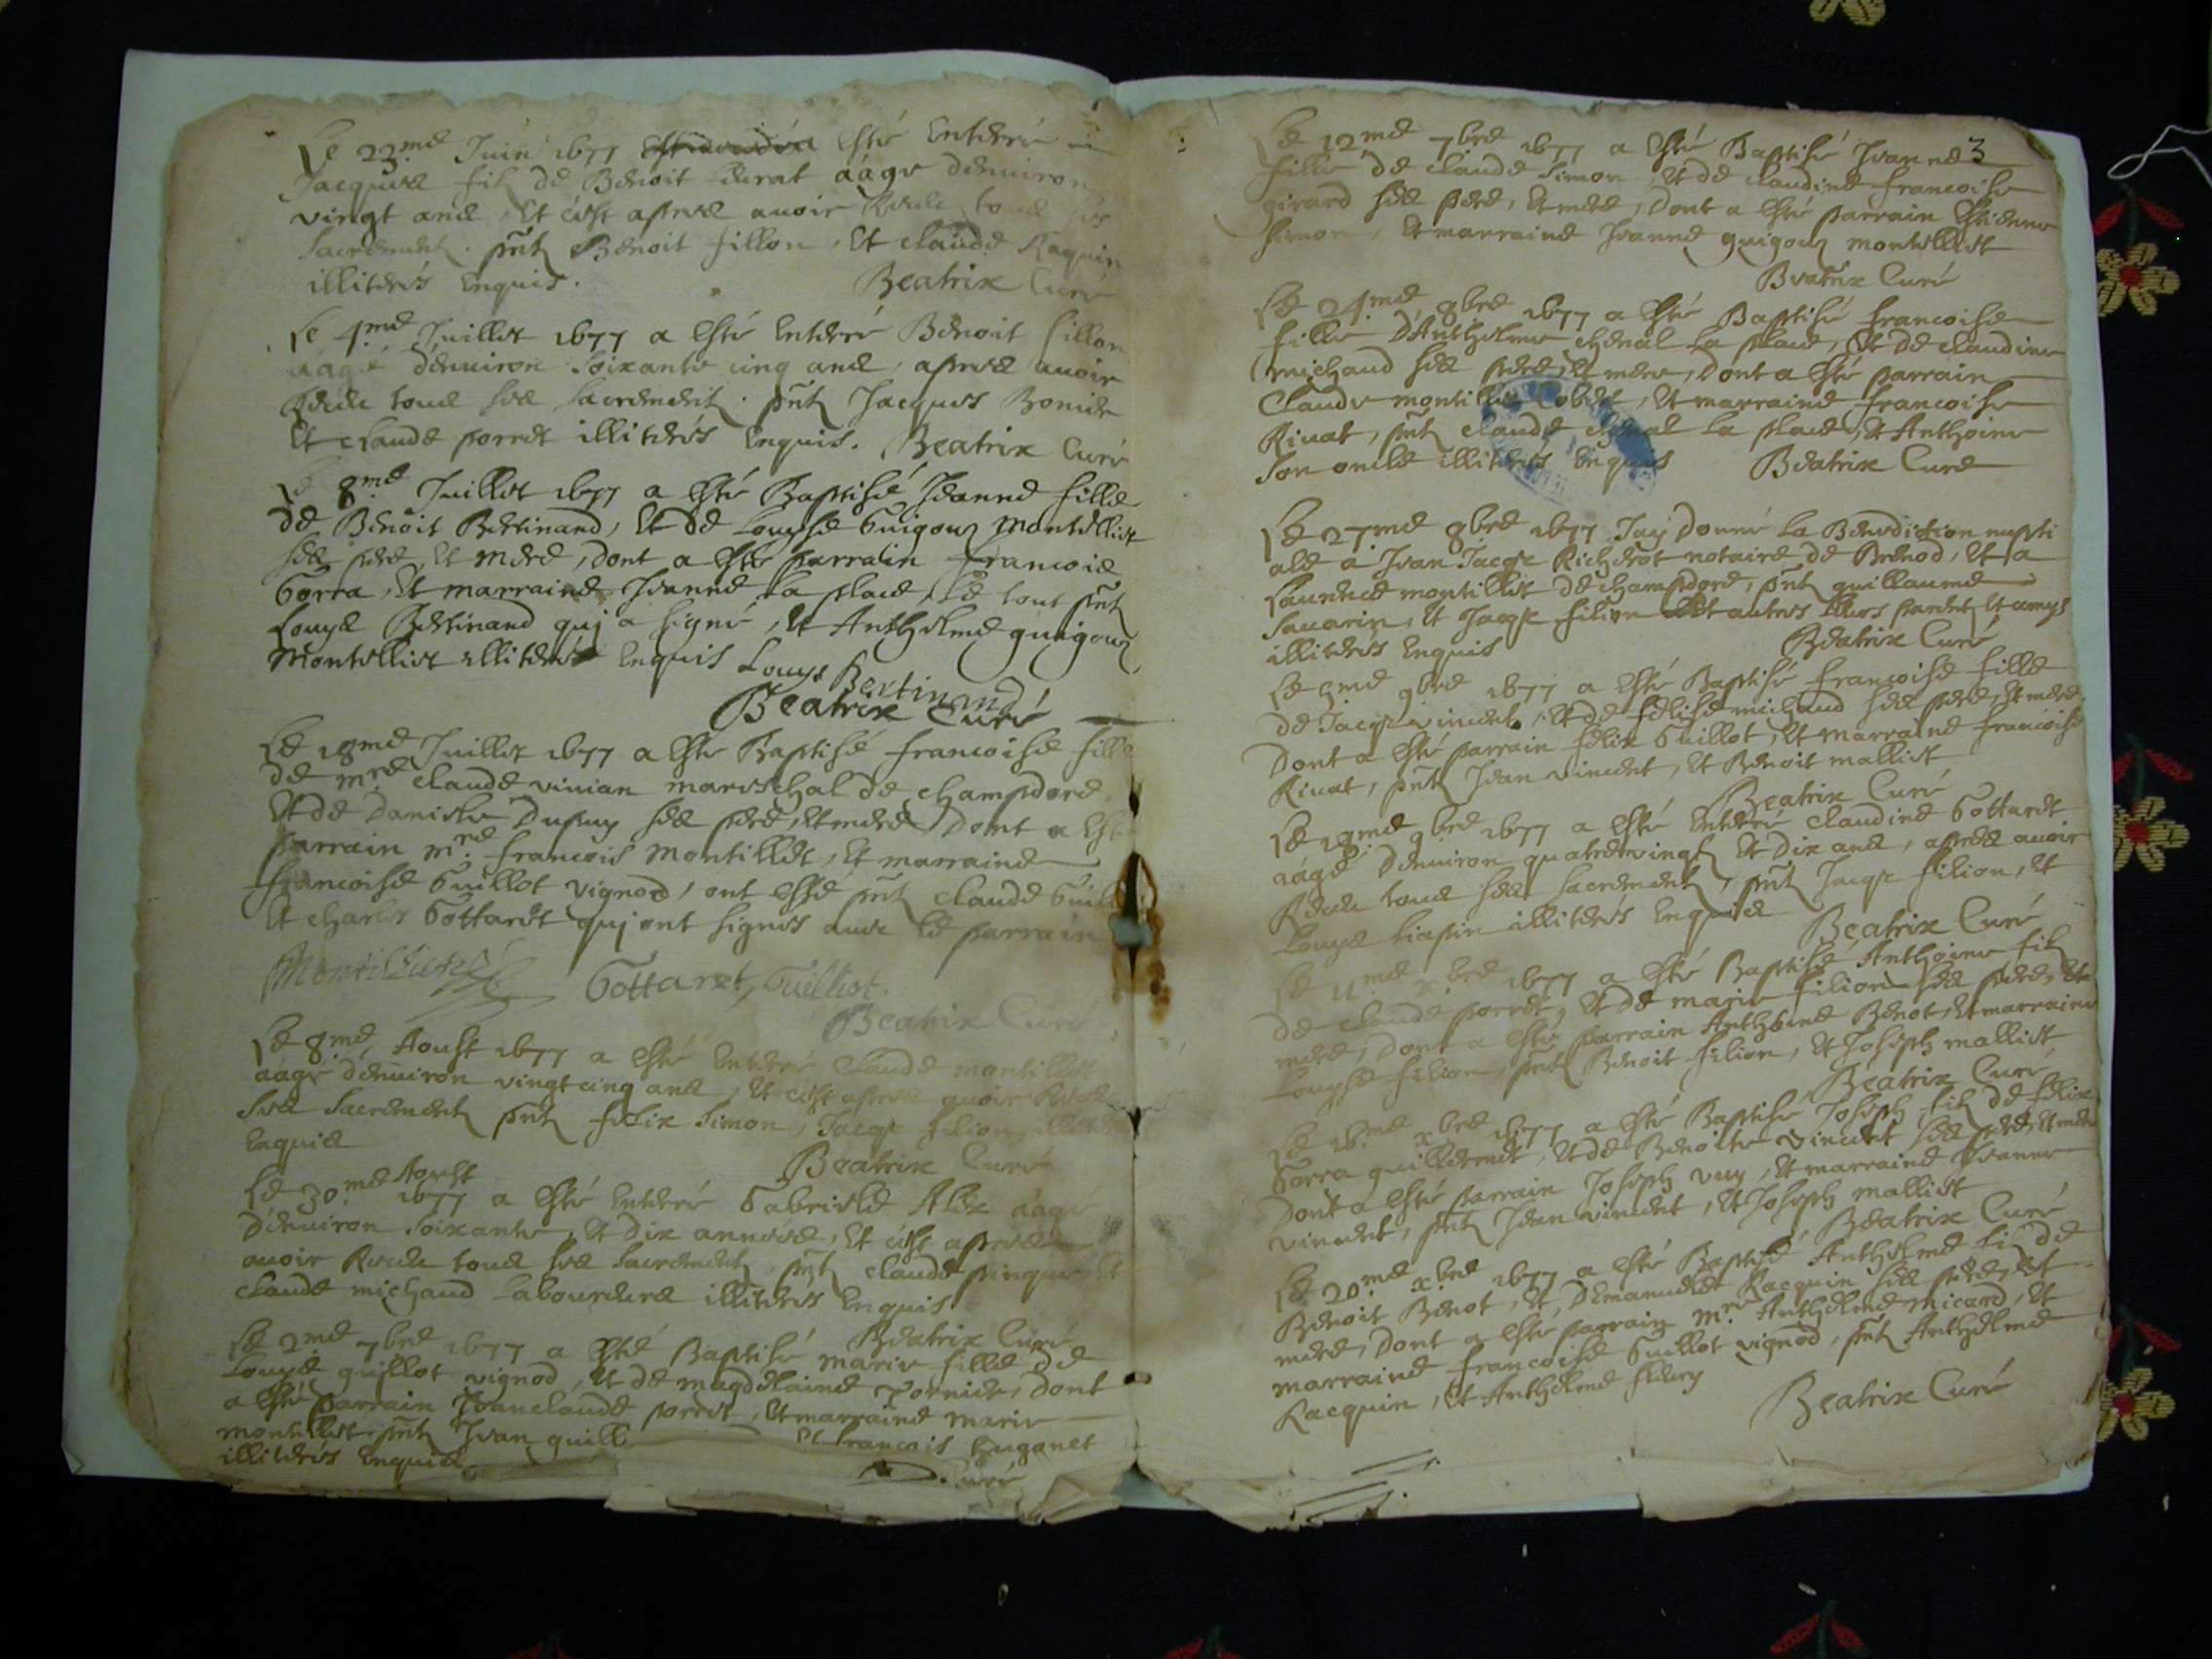 Le 23.me Juin 1677 esté Enterré
Jacques fils de Benoit aagé denuiron
vingt ans, et cest apres auoir Receu tous ses
Sacrement. pnt Benoit fillon, et claude Raquin
illiterés Enquis. Beatrix Curé
Le 4.me Juillet 1677 a esté Enterré Benoit fillon
aagé denuiron soixante cinq ans, apres auoir
Receu tous ses sacrement. pnt Jacques Bonier
et claude porret illiterés Enquis. Beatrix Curé
Le 8.me Juillet 1677 a esté Baptisé Jeanne fille
de Benoit Bertinand, et de Louyse Guigou Montillet
ses pere, et mere, dont a esté parrain francois
Gorra, et marraine Jeanne La place, Le tout pnt
Louys Bertinand quj a signé, et Anthelme guigou
Montillet illiterés Enquis Louys Bertinand
Beatrix Curé
Le 18me Juillet 1677 a esté Baptisé francoise fille
de mre. claude viuian mareschal de champdore,
et de Danielle Dupuy ses pere, et mere, Dont a esté
parrain mre. francois Montillet, et marraine
francoise Guillot vignod, ont esté pnt claude
et charles Gottaret quj ont signés auec Le parrain
Gottaret, Guilliot.
Beatrix Curé
Le 8.me Aoust 1677 a esté Enterré Claude montillet
aagé denuiron vingt cinq ans, et cest apres auoir Receu
ses sacrement pnt felix Simon, Jacqs filion,
Enquis
Beatrix Curé
Le 30.me Aoust
1677 a esté Enterré Gabrielle Alex aagé
denuiron soixante, et dix années, et cest apres
auoir Receu tous ses sacrement, pnt claude
claude michaud Laboureurs illiterés Enquis
Beatrix Curé
Le 2.me 7bre 1677 a esté Baptisé marie fille de
Louys guillot vignod, et de magdelaine, Dont
a esté parrain Jeanclaude porret, et marraine marie
montillet pnt Jean et francois huganet
illiterés Enquis
Curé
3
Le 12.me 7bre 1677 a esté Baptisé Jeanne
fille de claude Simon, et de claudine francoise
girard ses pere, et mere, Dont a esté parrain Estienne
Simon, et marraine Jeanne guigou montillet
Beatrix Curé
Le 24.me 8bre 1677 a esté Baptisé francoise
fille D'Anthelme cheual La place, et de claudine
michaud ses pere, et mere, Dont a esté parrain
Claude montillet, et marraine francoise
Riuat, pnt claude cheual La place, et Anthoine
son oncle illiterés Enquis Beatrix Curé
Le 27.me 8bre 1677 Jay Donné La Benediction nupti
ale a Jean Jacqs Richerot notaire de Brenod, et a
Laurence montillet de champdore, pnt guillaume
Sauarin, et Jacqs filion et autres Leurs parent et amys
illiterés Enquis Beatrix Curé
Le 5.me 9bre 1677 a esté Baptisé francoise fille
de Jacqs vincent, et de felise michaud ses pere, et mere
Dont a esté parrain felix Guillot, et marraine francoise
Riuat, pnt Jean vincent, et Benoit mallict
Beatrix Curé
Le 18.me 9bre 1677 a esté Enterré claudine Gottaret
aagé denuiron quatre vingt et dix ans, apres auoir
Receu tous ses sacrement, pnt Jacqs filion, et
Louys Liapin illiterés Enquis Beatrix Curé
Le 11.me xbre 1677 a esté Baptisé Anthoine fils
de claude porret, et de marie filion ses pere, et
mere, Dont a esté parrain Anthoine Benot, et marraine
Louyse filion, pnt Benoit filion, et Joseph mallict
Beatrix Curé
Le 16.me xbre 1677 a esté Baptisé Joseph fils de felix
Gorra guillermet, et de Benoite vincent ses pere, et mere
Dont a esté parrain Joseph vuy, et marraine Jeanne
vincent, pnt Jean vincent, et Joseph mallict
Beatrix Curé
Le 20.me xbre 1677 a esté Baptisé Anthelme fils de
Benoit Benot, et, Demanuelle Racquin ses pere, et
mere, Dont a esté parrain mre. Anthelme micard, et
marraine francoise Guillot vignod, pnt Anthelme
Racquin, et Anthelme fleury
Beatrix Curé